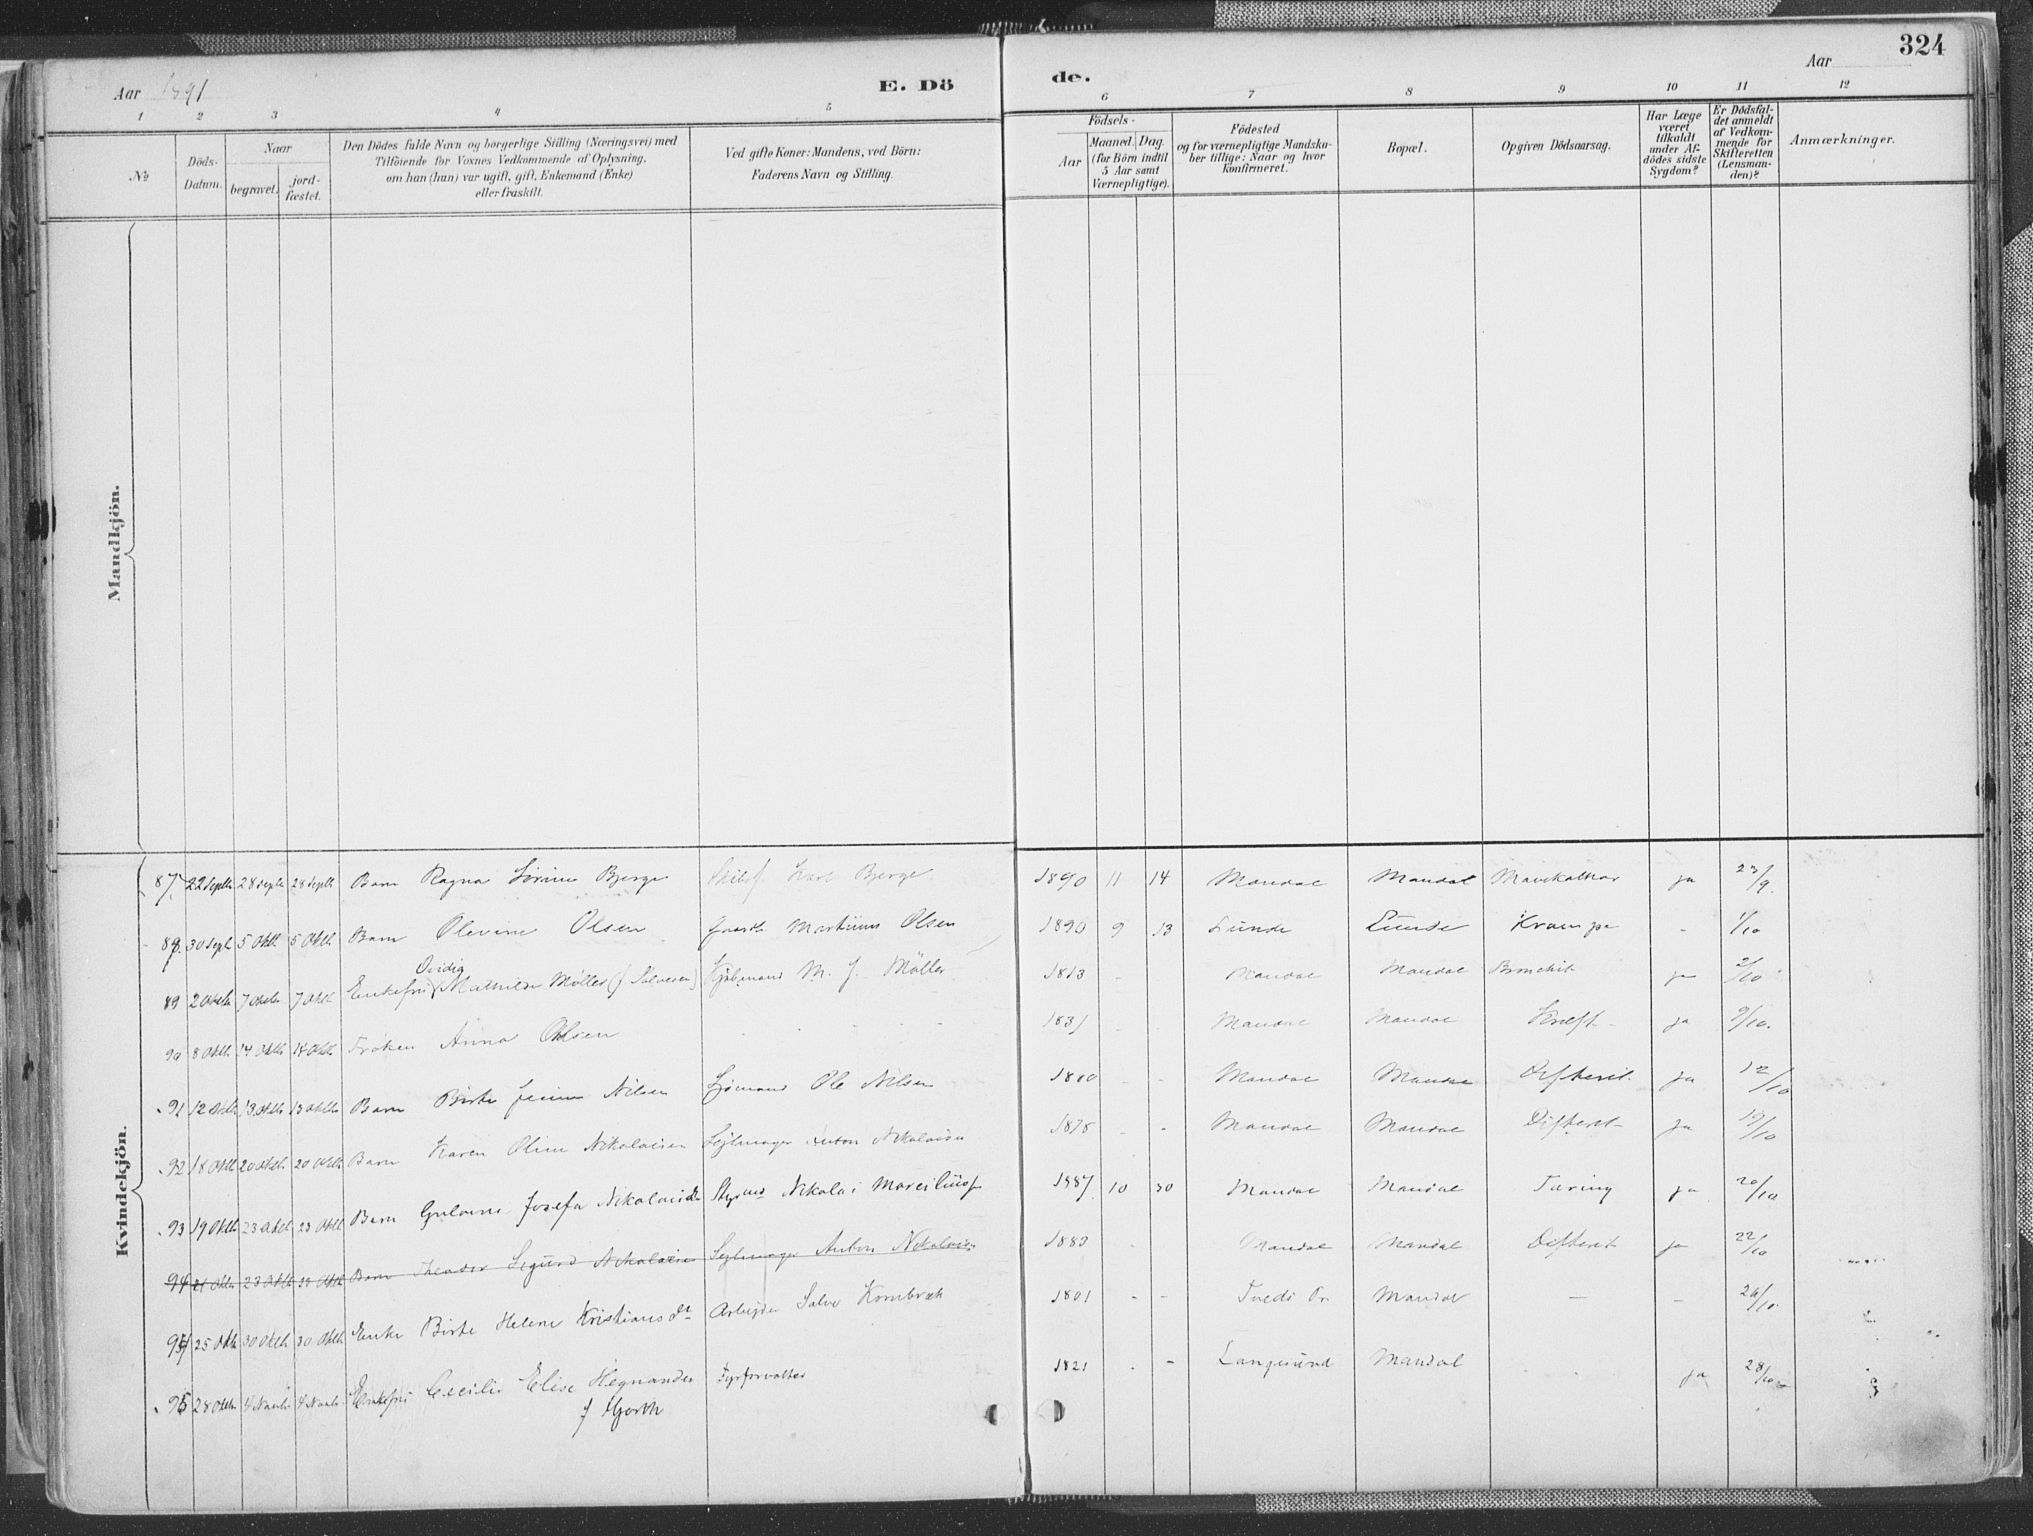 324
Aar 1891 E. Dö de. Aar
1 2 3 4 5 6 7 8 9 10 11 12
No
Döds-Datum.
Naar
begravet.
jord-fæstet.
Den Dödes fulde Navn og borgerlige Stilling (Næringsvei) med
Tilföiende for Voxnes Vedkommende af Oplysning,
om han (hun) var ugift, gift, Enkemand (Enke)
eller fraskilt.
Ved gifte Koner: Mandens, ved Börn:
Faderens Navn og Stilling.
Födsels-
Aar
Maaned.
Dag.
(for Börn indtil
5 Aar samt
Værnepligtige).
Födested
og for værnepligtige Mandska-
ber tillige: Naar og hvor
konfirmeret.
Bopæl.
Opgiven Dödsaarsag.
Har Læge
været
tilkaldt
under Af-
dödes sidste
Sygdom?
Er Dödsfal-
det anmeldt
af Vedkom-
mende for
Skifteretten
(Lensman-
den)?
Anmærkninger.
Mandkjön.
Kvindekjön.
87 22 Septb 28 Septb 28 Septb Barn Ragna Sörine Bjerge Karl Bjerge 1890 11 14 Mandal Mandal ja 23/9.
30 Sept 5 Oktb 5 Oktb Barn Olevine Olsen Martinus Olsen 1890 9 13 Lunde Lunde Krampe - 1/10
89 2 Oktb 7 Oktb 7 Oktb Enkefru Ovidia Mathilde Møller (f Salvesen) M. J. Møller 1813 - Mandal Mandal Bronchit ja 2/10
90 8 Oktb 14 Oktb 14 Oktb Frøken Anna Olsen 1831 - - Mandal Mandal Kræft ja 9/10.
91 12 Oktb 13 Oktb 13 Oktb Barn Birte Nilsen Sjømand Ole Nilsen 1880 - - Mandal Mandal Difterit. ja 12/10
92 18 Oktb 20 Oktb 20 Oktb Barn Karen Oline Nikolaisen Anton Nikolaisen 1878 - - Mandal Mandal Difterit ja 19/10
93 19 Oktb 23 Oktb 23 Oktb Barn Josefa Nikolaisen Nikolai 1887 10 30 Mandal Mandal Tæring ja 20/10
94 21 Oktb 23 Oktb 23 Oktb Barn Theodor Sigurd Nikolaisen Anton Nikolaisen 1883 - Mandal Mandal Difterit ja 22/10
25 Oktb 30 Oktb 30 Oktb Enke Birte Helene Kristiansdt Arbeider Salve 1801 - - Mandal - - 26/10
28 Oktb 4 Novb 4 Novb Enkefru Cecilie Elise Hegnander Fyrforvalter 1821 - - Langesund Mandal ja 28/10
f Hjorth